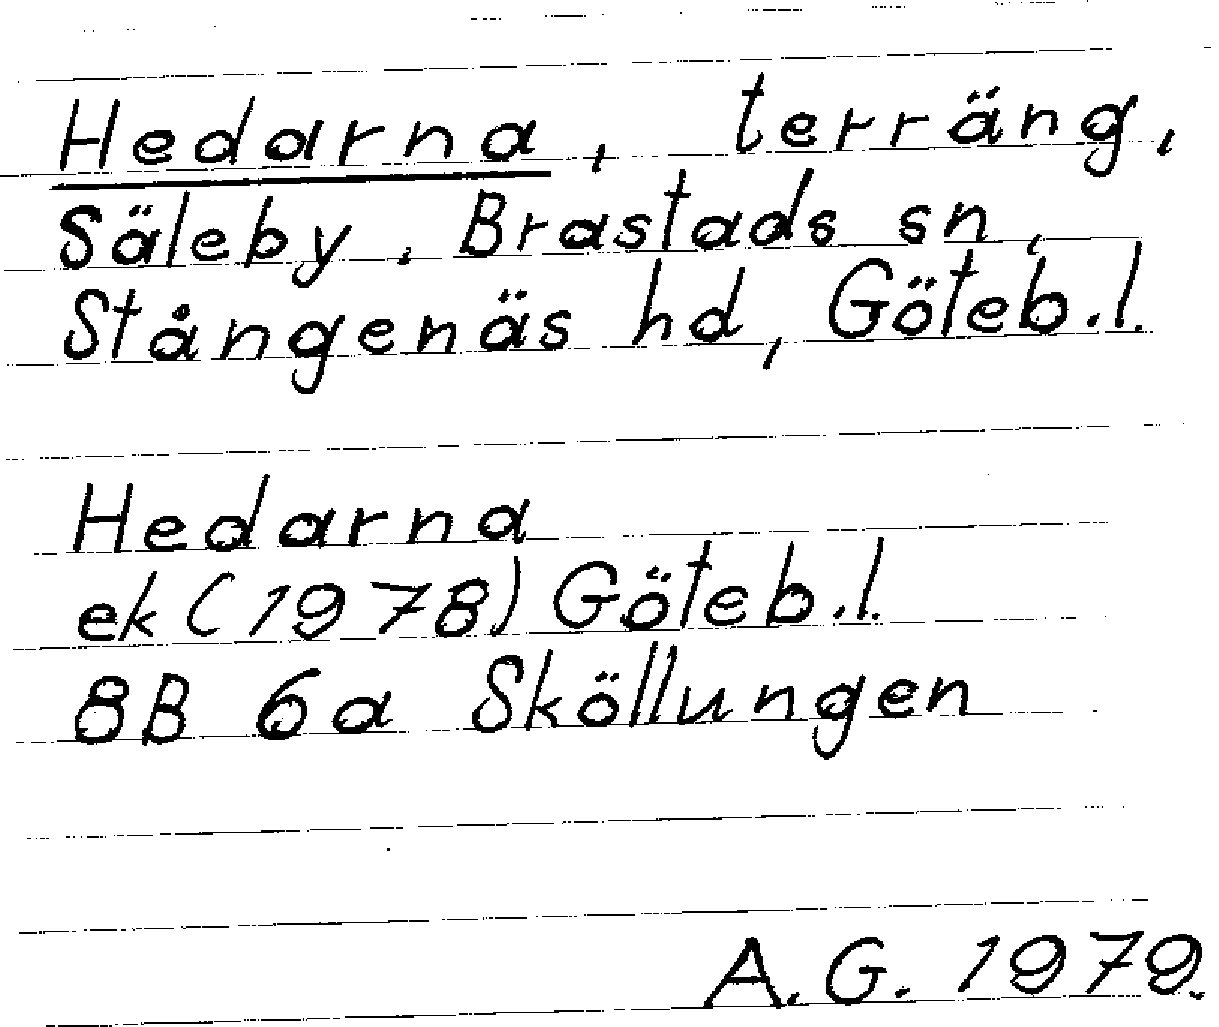 Hedarna, terräng,
Säleby, Brastads sn,
Stångenäs hd, Göteb.l.
Hedarna
ek (1978) Göteb.l.
8B 6a Sköllungen
A.G. 1979.